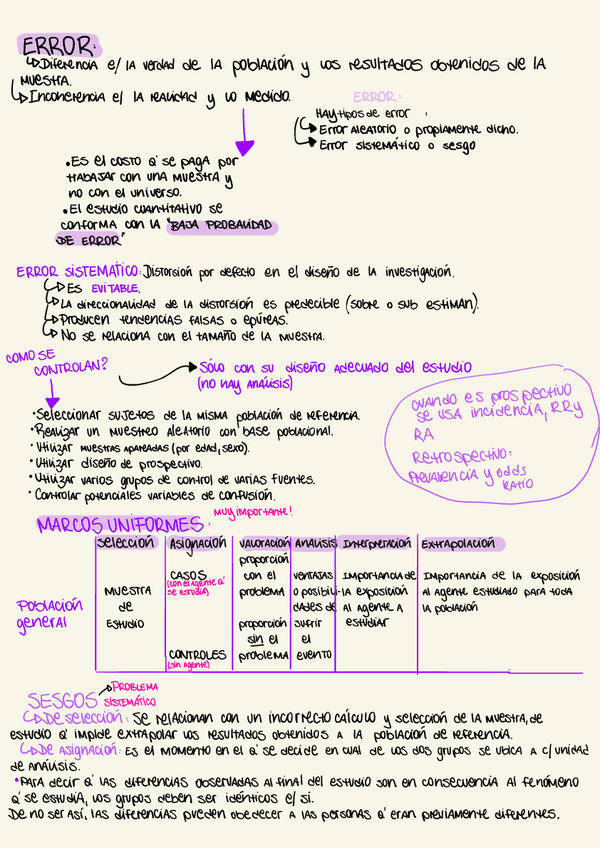 ERROR:
Diferencia e/ la verdad de la población y los resultados obtenidos de la
muestra.
Incoherencia e/ la realidad y lo medido.
ERROR:
Hay tipos de error :
Error aleatorio o propiamente dicho.
Error sistemático o sesgo
• Es el costo q' se paga por
trabajar con una muestra y
no con el universo.
• El estudio cuantitativo se
conforma con la "BAJA PROBALIDAD
DE ERROR"
ERROR SISTEMATICO: Distorsión por defecto en el diseño de la investigación.
Es EVITABLE.
La direccionalidad de la distorsion es predecible (sobre o sub estiman).
Producen tendencias falsas o epúreas.
No se relaciona con el tamaño de la muestra.
COMO SE
CONTROLAN?
Sólo con su diseño adecuado del estudio
(no hay análisis)
• Seleccionar sujetos de la misma población de referencia.
• Realizar un muestreo aleatorio con base poblacional.
• Utilizar muestras apareadas (por edad, sexo).
• Utilizar diseño de prospectivo.
• Utilizar varios grupos de control de varias fuentes.
• Controlar potenciales variables de confusión.
cuando es prospectivo
se usa incidencia, RR y
RA
Retrospectivo:
Prevalencia y odds
ratio
Muy importante!
MARCOS UNIFORMES:
Selección Asignación Valoración Análisis Interpretación Extrapolación
Población
general
MUESTRA
de
Estudio
CASOS
(con el agente q'
se estudia)
CONTROLES
(sin agente)
proporción
con el
problema
proporción
sin el
problema
ventajas
o posibili-
dades de
sufrir
el
evento
Importancia de
la exposición
al agente a
estudiar
Importancia de la exposición
al agente estudiado para toda
la población
SESGOS
Problema
sistemático
De selección: Se relacionan con un incorrecto cálculo y seleccion de la muestra, de
estudio q' impide extrapolar los resultados obtenidos a la población de referencia.
De asignación: Es el momento en el q' se decide en cual de los dos grupos se ubica a c/unidad
de análisis.
• Para decir q' las diferencias observadas al final del estudio son en consecuencia al fenómeno
q' se estudia, los grupos deben ser idénticos e/ sí.
De no ser así, las diferencias pueden obedecer a las personas q' eran previamente diferentes.